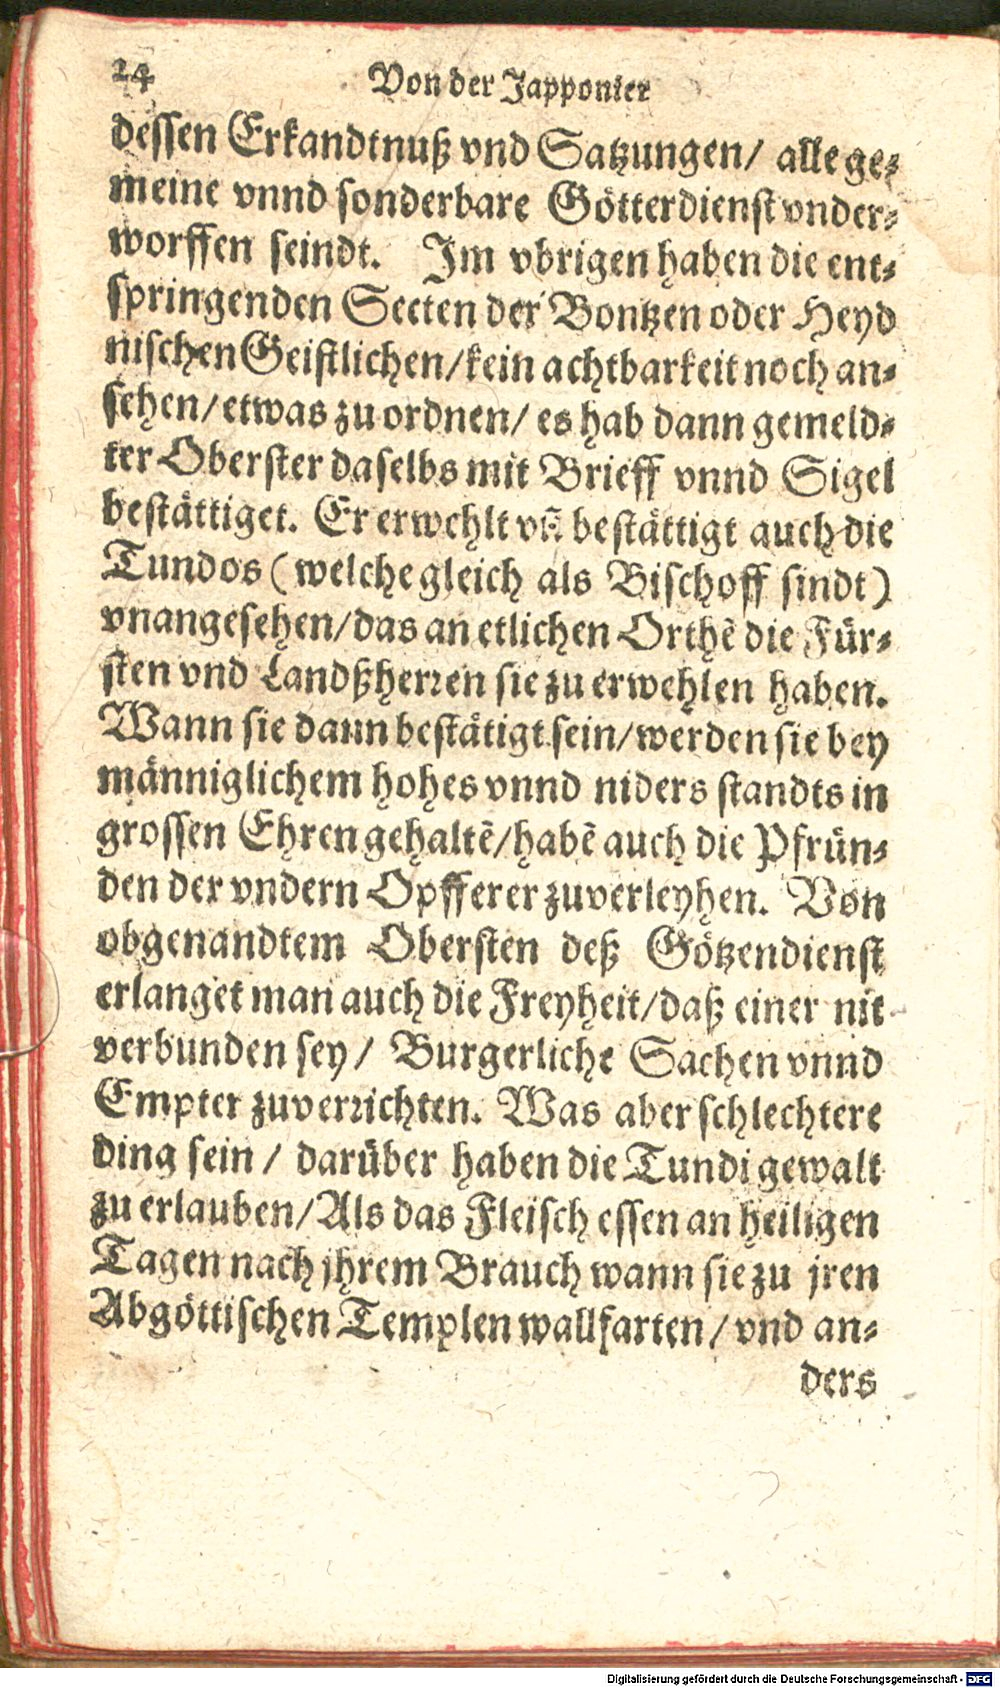 24
Von der Japponier
dessen Erkandtnuß vnd Satzungen/ alle ge⸗
meine vnnd sonderbare Götterdienst vnder⸗
worffen seindt. Im vbrigen haben die ent⸗
springenden Secten der Bontzen oder Heyd
nischen Geistlichen/ kein achtbarkeit noch an⸗
sehen/ etwas zu ordnen/ es hab dann gemeld⸗
ter Oberster daselbs mit Brieff vnnd Sigel
bestättiget. Er erwehlt vñ bestättigt auch die
Tundos (welche gleich als Bischoff sindt)
vnangesehen/ das an etlichen Orthẽ die Für⸗
sten vnd Landßherren sie zu erwehlen haben.
Wann sie dann bestätigt sein/ werden sie bey
männiglichem hohes vnnd niders standts in
grossen Ehren gehaltẽ/ habẽ auch die Pfrün⸗
den der vndern Opfferer zuverleyhen. Von
obgenandtem Obersten deß Götzendienst
erlanget man auch die Freyheit/ daß einer nit
verbunden sey/ Burgerliche Sachen vnnd
Empter zuverrichten. Was aber schlechtere
ding sein/ darüber haben die Tundi gewalt
zu erlauben/ Als das Fleisch essen an heiligen
Tagen nach jhrem Brauch wann sie zu jren
Abgöttischen Templen wallfarten/ vnd an⸗
ders
Digitalisierung gefördert durch die Deutsche Forschungsgemeinschaft - DFG